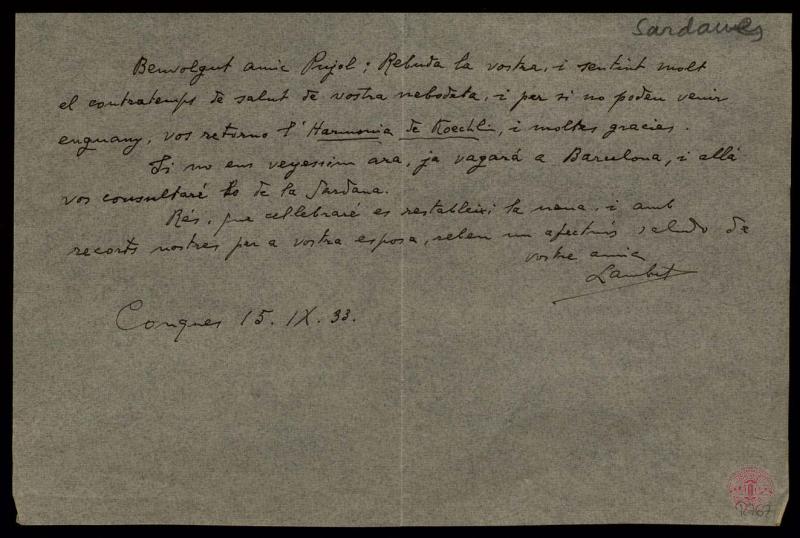 Sardanes
Benvolgut amic Pujol; Rebuda la vostra, i sentint molt
el contratemps de salut de vostra nebodeta, i per si no podeu venir
enguany, vos retorno l'Harmonia de Koechlin, i moltes gracies.
Si no ens veyessim ara, ja vagará a Barcelona, i allá
vos consultaré lo de la Sardana.
Rés, que cellebraré es restableixi la nena, i amb
recorts nostres per a vostra esposa, rebeu un afectuós saludo de
vostre amic
Lambert
Conques 15. IX. 33.